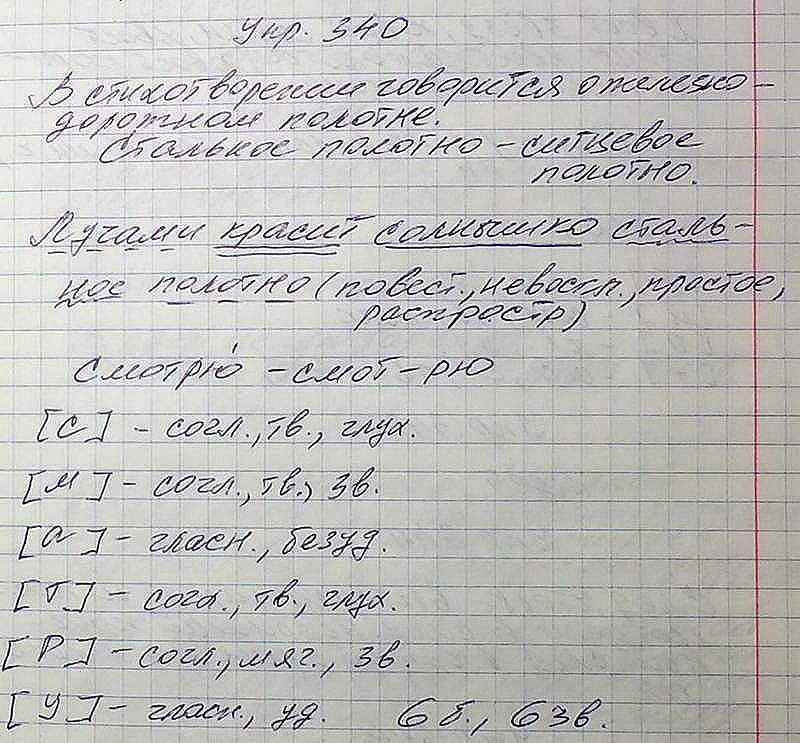 Упр. 340
В стихотворении говорится о железно-
дорожном полотне.
Стальное полотно - ситцевое
полотно.
Лучами красит солнышко сталь-
ное полотно (повест., невоскл., простое,
распростр)
смотрю́ - смот - рю
[С] - согл., тв., глух.
[М] - согл., тв., зв.
[а] - гласн., безуд.
[Т] - согл., тв., глух.
[Р] - согл., мяг., зв.
[У] - гласн., уд. 6 б., 6 зв.